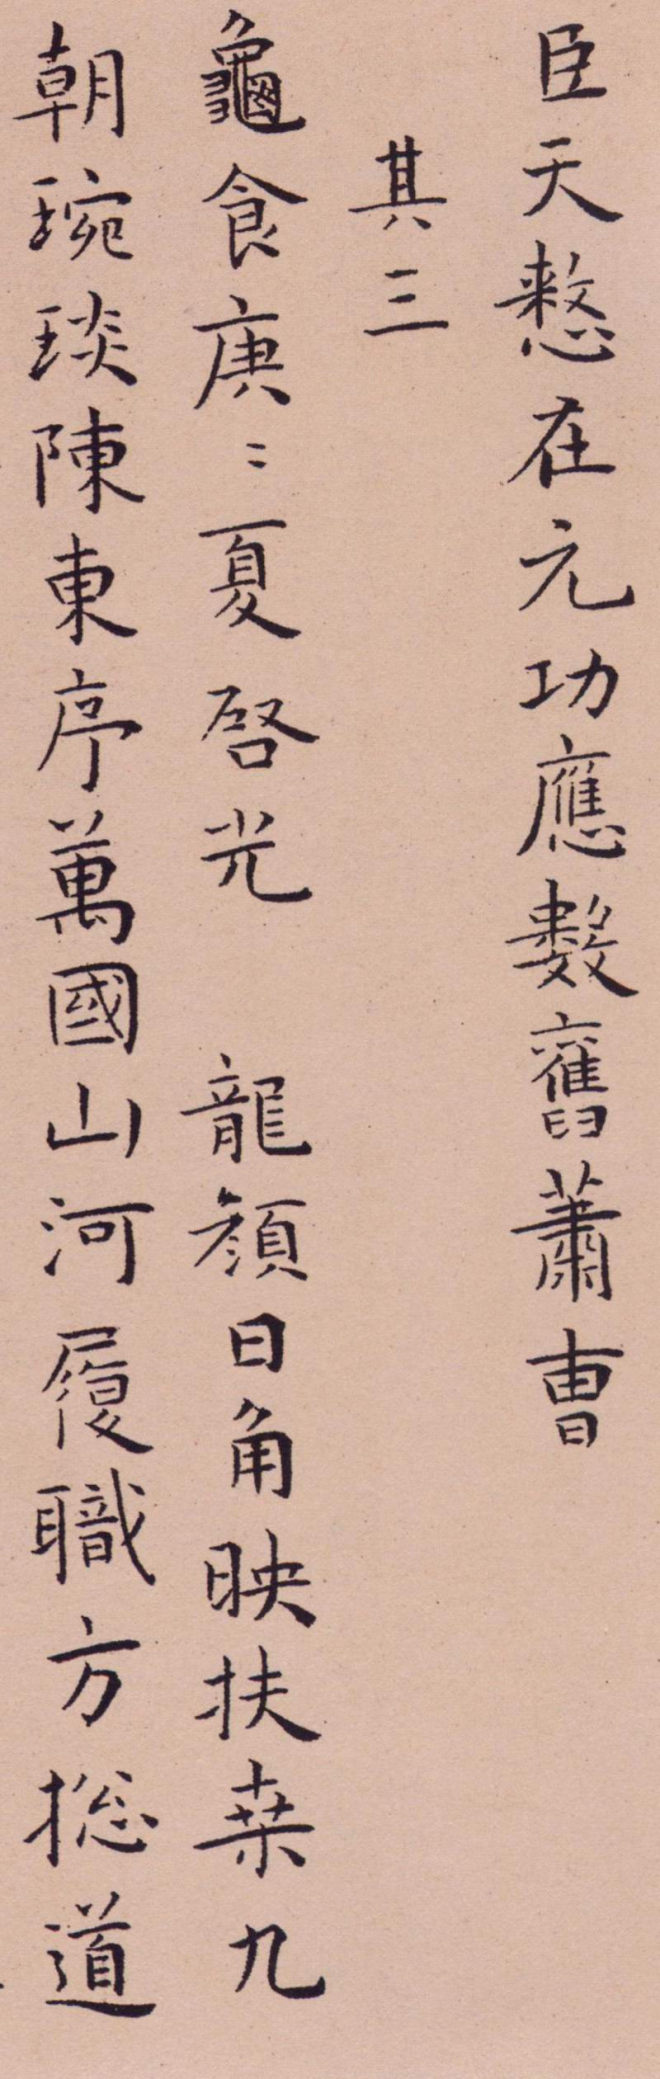 臣天憖在元功應數舊蕭曹
其三
龜食庚〻夏啓光　龍顏日角映扶桒九
朝琬琰陳東序萬國山河履職方捴道